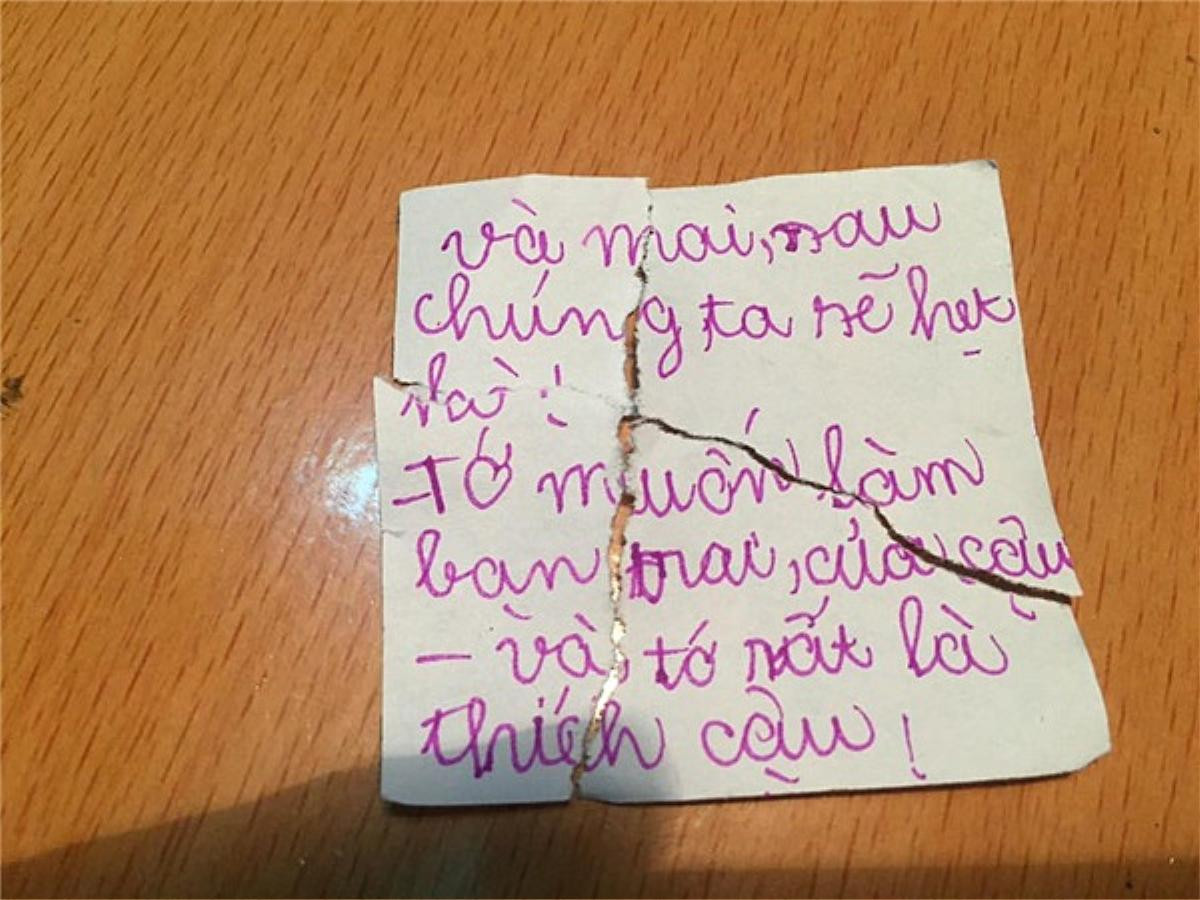 và mai, sau
chúng ta sẽ hẹt
hà!
-Tớ muốn làm
ban trai, của cậu
- và tớ rất là
thích cậu!